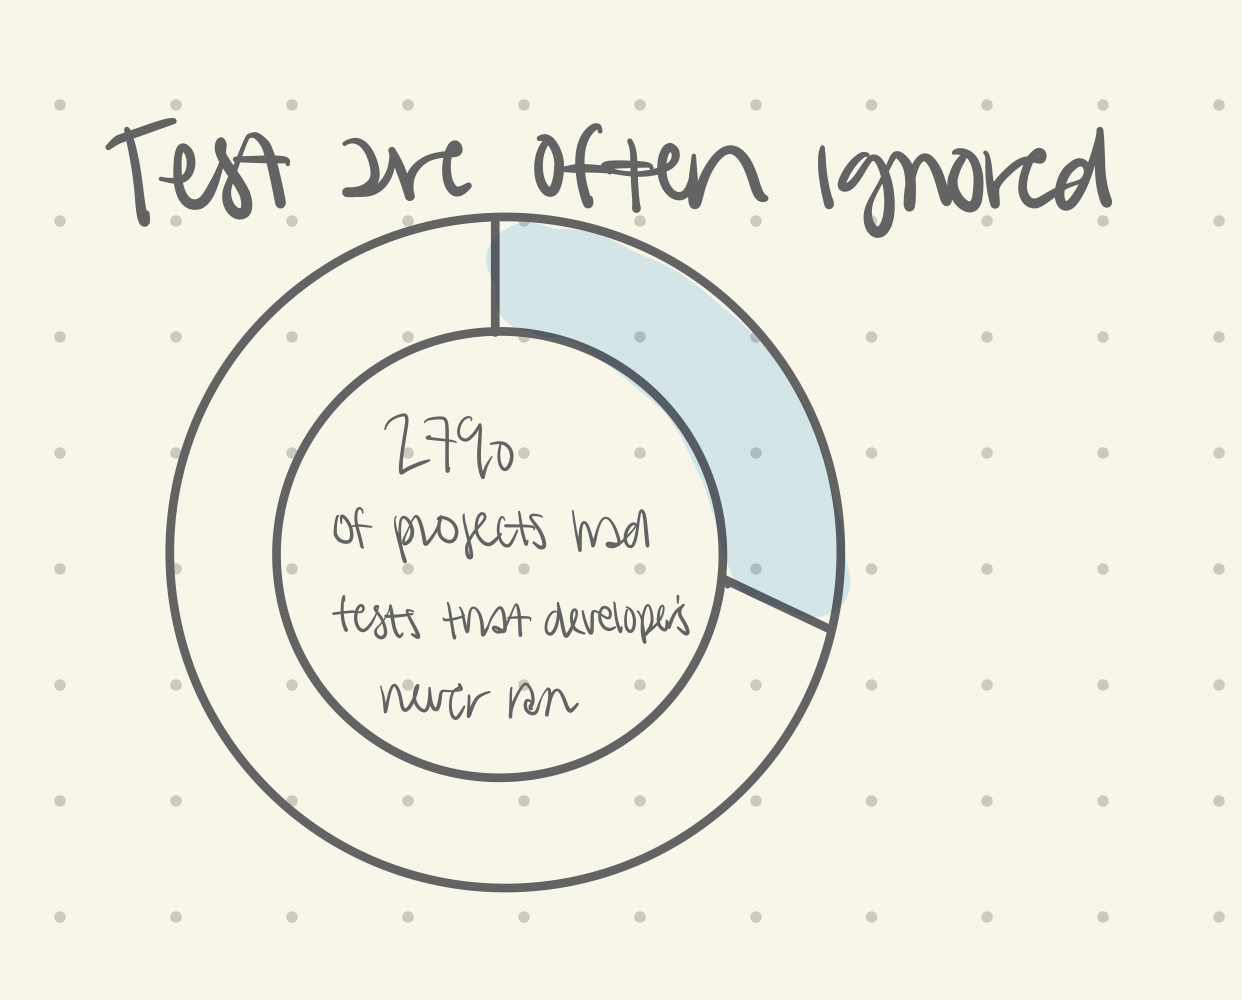 Test are often ignored
27%
of projects had
tests that developers
never ran